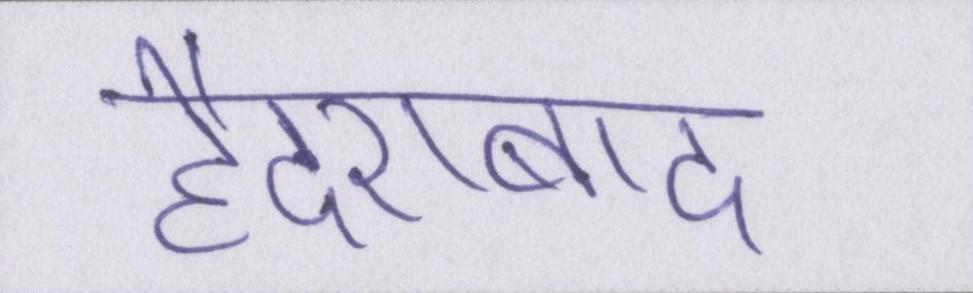 हैदराबाद